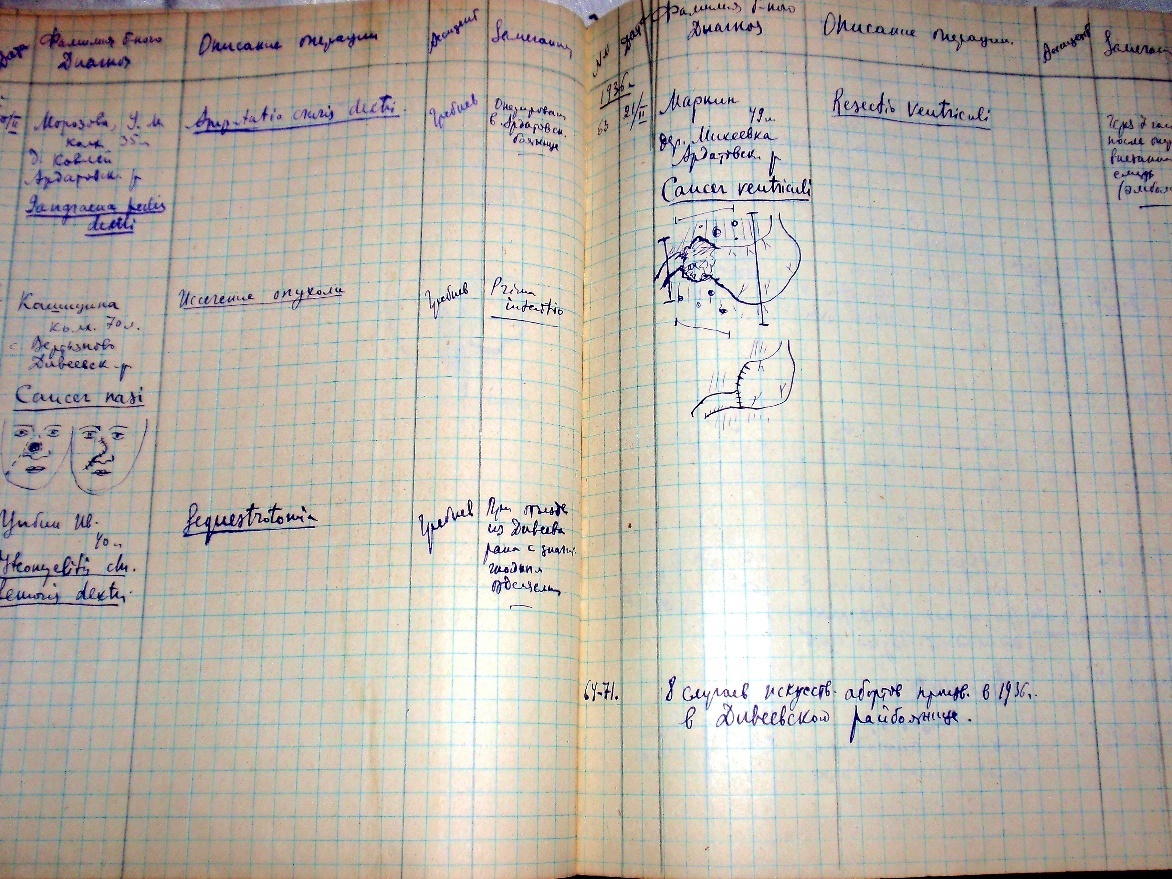 Дата
Фамилия б-ного
Диагноз
Описание операции
Ассистент
Замечания
Морозова, У. М
колх. 35 л
Д. Ковлей
Ардатовск. р
Gangraena pedis
dextri
Amputatio cruris dextri.
Гребнев
Оперирован
в Ардатовск.
больнице
Кашицина
70 л.
Дивеевск. р
Cancer nasi
Иссечение опухоли
Гребнев
Prima
intentio
Ив.
40 л
Osteomyelitis chr.
femoris dextri.
Sequestrotomia
Гребнев
При отъезде
из Дивеева
рана с
гнойным
отделяем
№№
Дата
Фамилия б-ного
Диагноз
Описание операции.
Ассистент
Замечан
1936 г.
63
21/II
Маркин
49 л
дер. Михеевка
Ардатовск. р
Cancer ventriculi
Resectio ventriculi
Через
после опер
внезапн
смерть
(эмбол
64-71.
8 случаев искусств. абортов произв. в 1936 г.
в Дивеевской райбольнице.